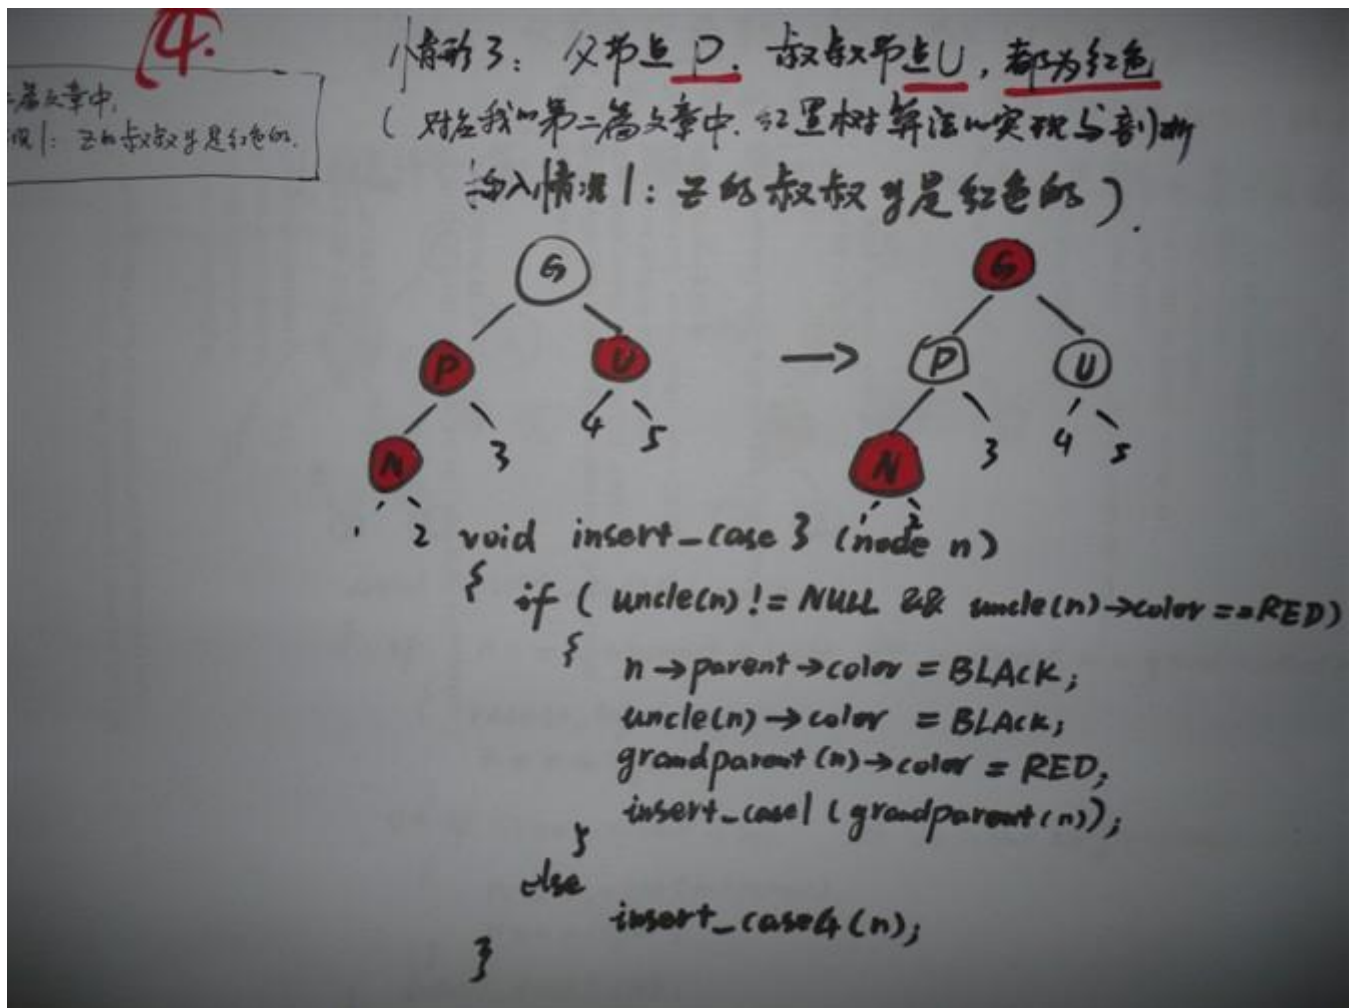 4.
二篇文章中,
况1: z的叔叔y是红色的.
情形3: 父节点P, 叔叔节点U, 都为红色
(对应我的第二篇文章中, 红黑树算法的实现与剖析
插入情况1: z的叔叔y是红色的).
G
G
P
U
P
U
N
3
4
5
N
3
4
5
1
2
1
2
void insert_case3 (node n)
{ if ( uncle(n) != NULL && uncle(n)→color == RED)
{
n→parent→color = BLACK;
uncle(n)→color = BLACK;
grandparent(n)→color = RED;
insert_case1 (grandparent(n));
}
else
insert_case4 (n);
}